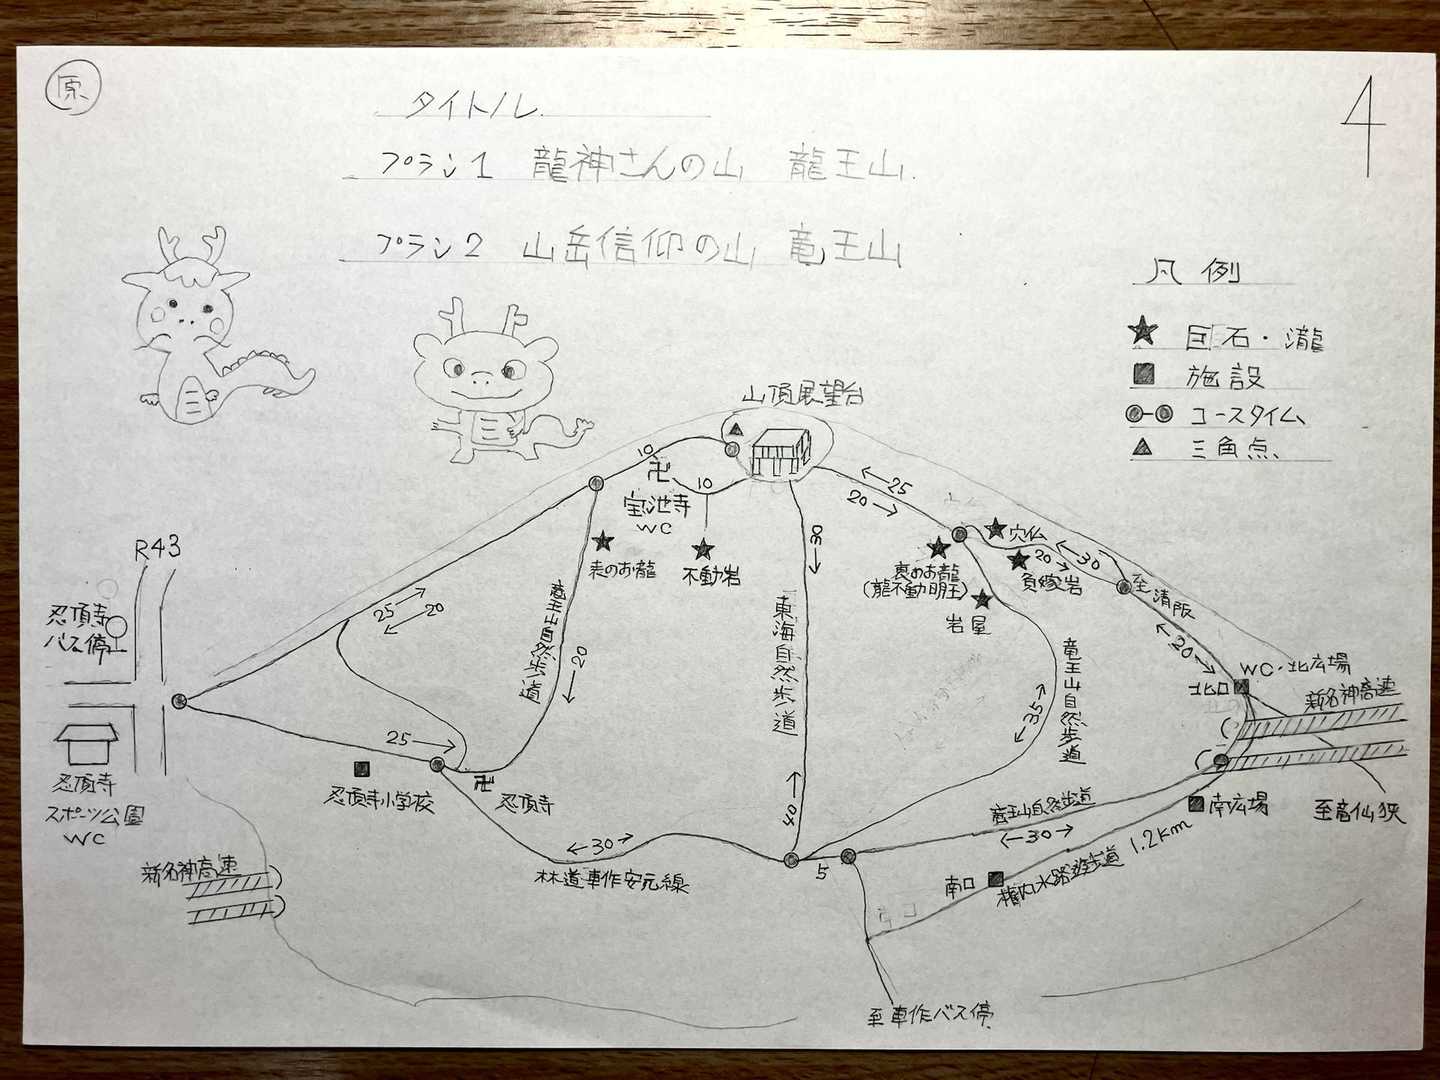 原
4
タイトル
プラン1 龍神さんの山 龍王山
プラン2 山岳信仰の山 竜王山
凡例
巨石・瀧
施設
コースタイム
三角点
山頂展望台
10
卍
宝池寺
WC
10
←25
20→
穴仏
←30
20
負嫁岩
至清阪
表のお瀧
不動岩
裏のお瀧
(瀧不動明王)
岩屋
30→
R43
忍頂寺
バス停
25→
←20
竜王山自然歩道
←20
東海自然歩道
竜王山自然歩道
←35→
←20→
WC・北広場
北口
新名神高速
忍頂寺
スポーツ公園
WC
25→
忍頂寺小学校
卍
忍頂寺
40→
竜王山自然歩道
←30→
南広場
至竜仙狭
1.2km
新名神高速
←30→
林道車作安元線
5
南口
権内水路遊歩道
至車作バス停